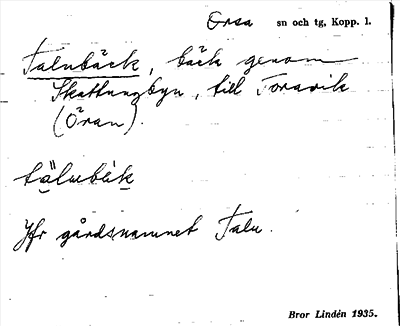 Orsa sn och tg, Kopp. l.
Talubäck, bäck genom
Skattungbyn, till Toravik
(Öran).
tä̀lubék
Jfr gårdsnamnet Talu.
Bror Lindén 1935.